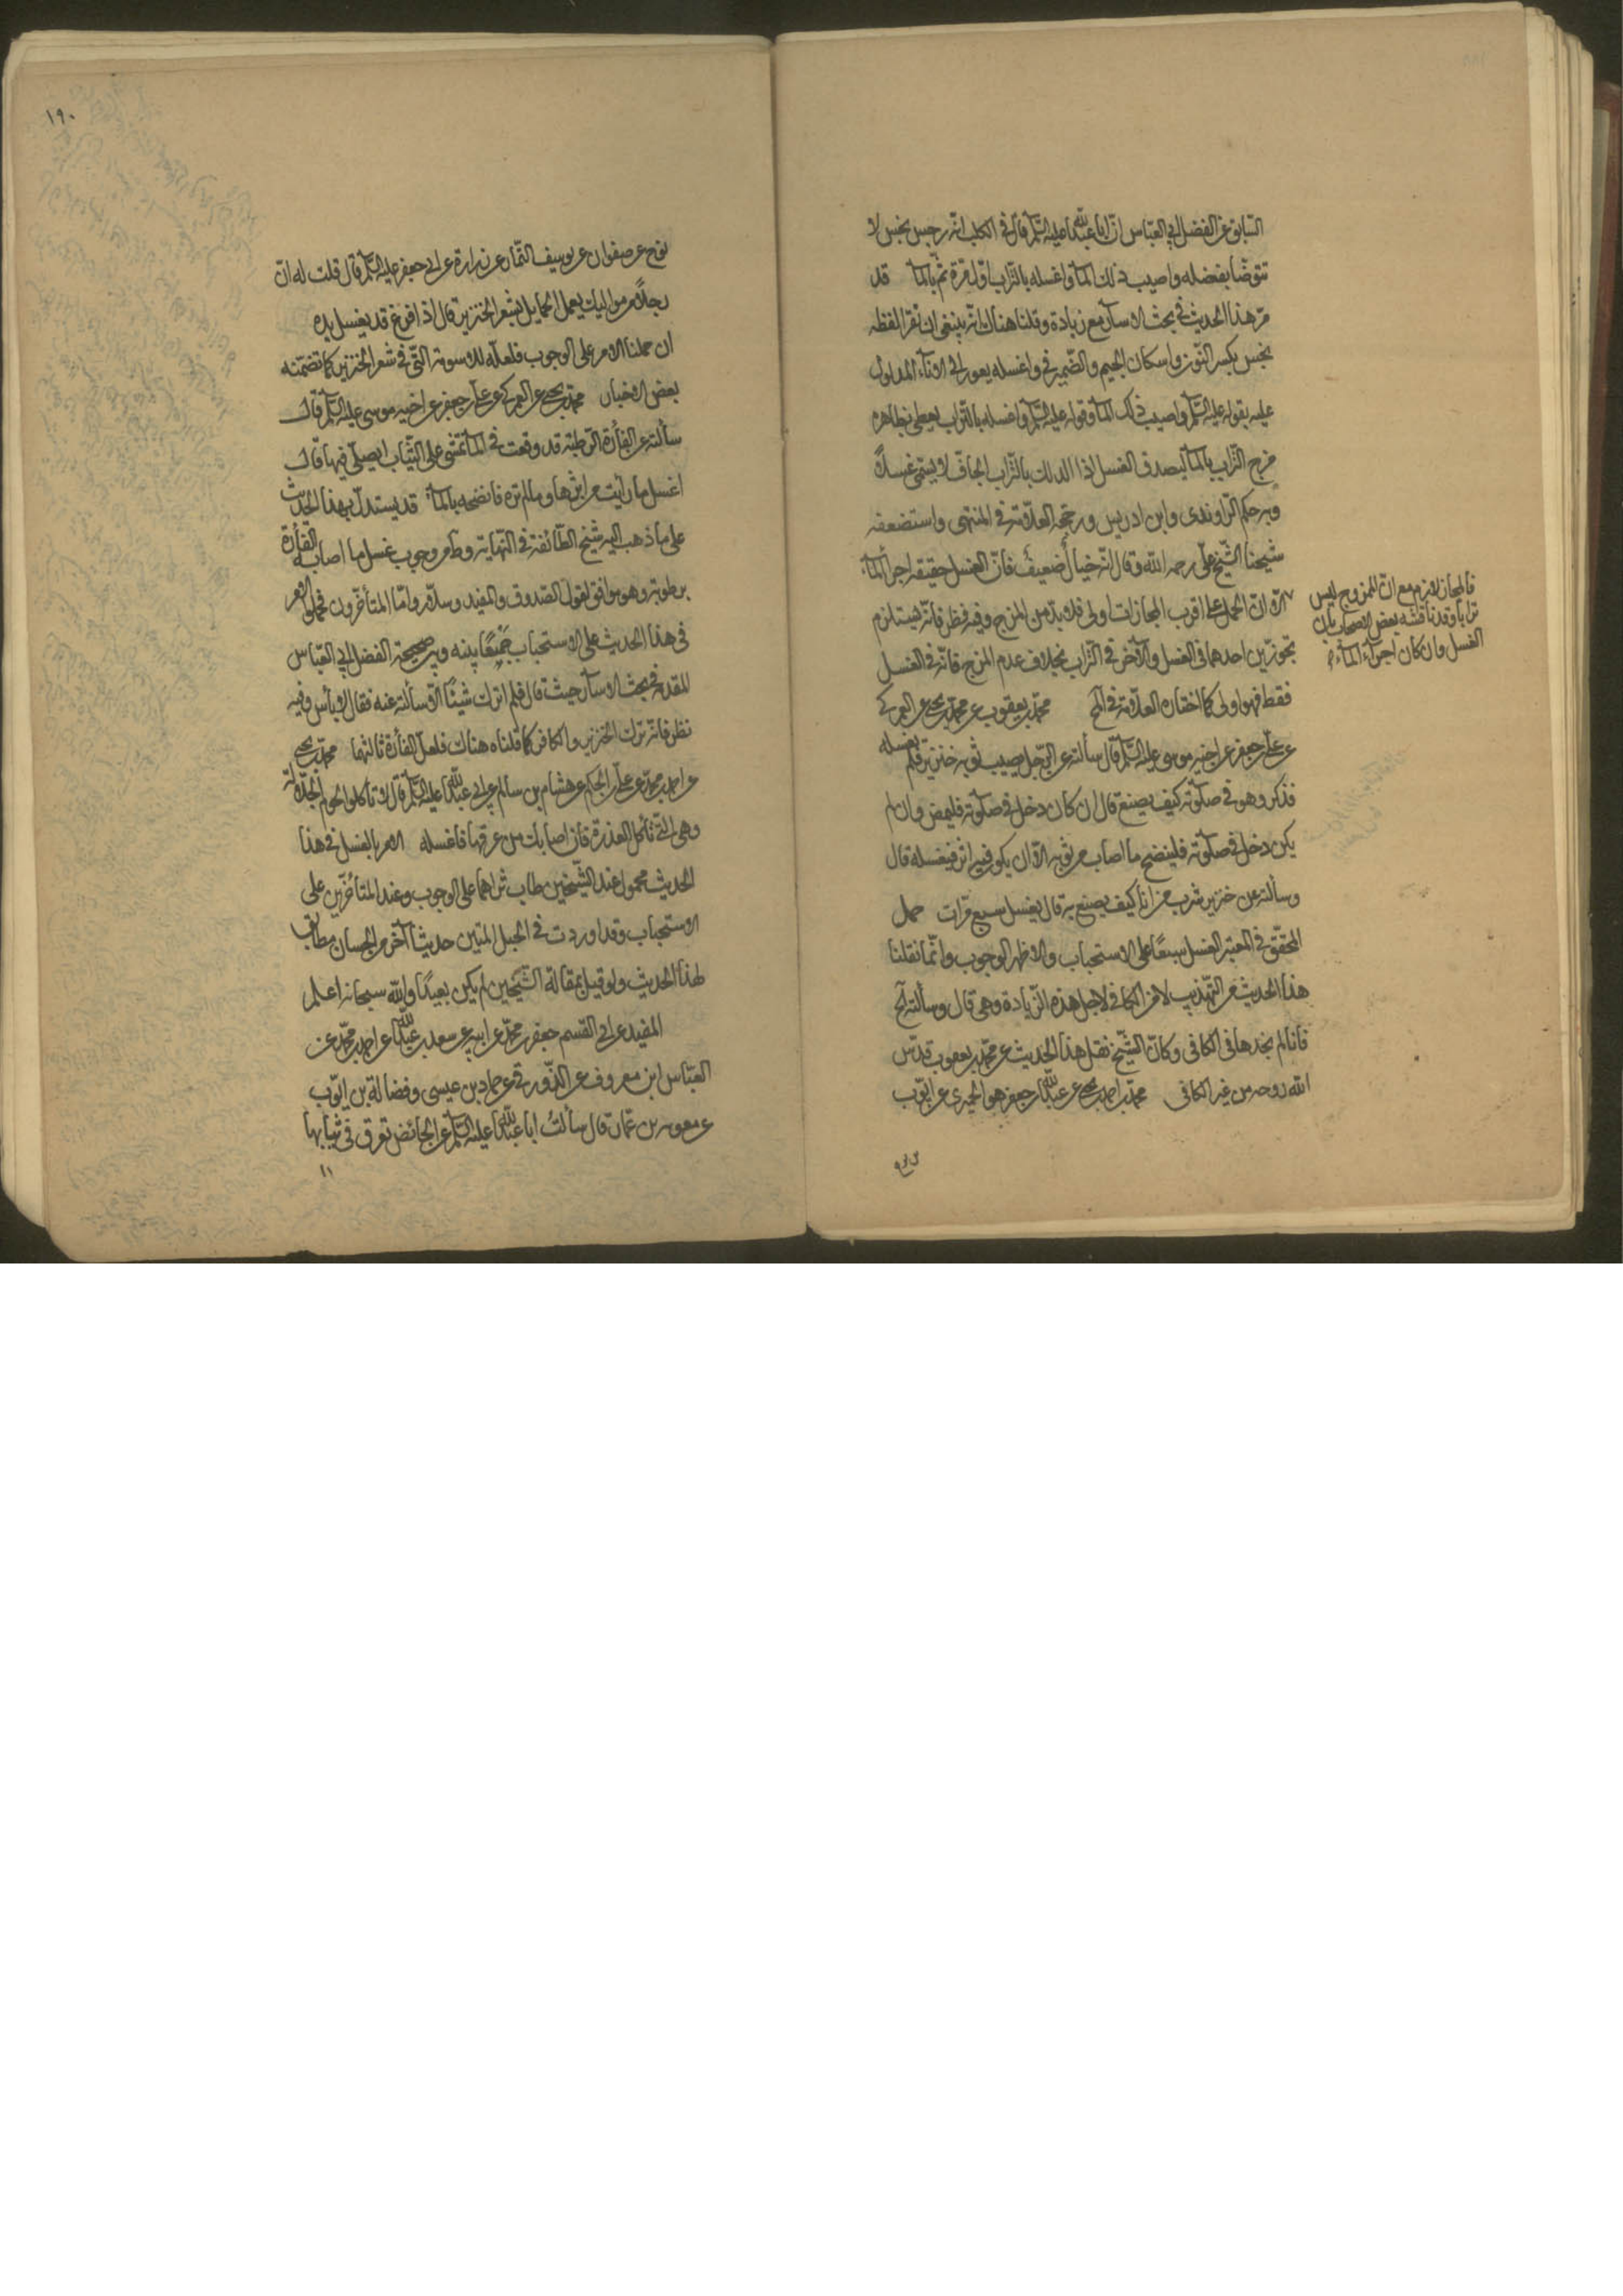 السابق عن الفضل ابي العباس ان ابا عبدالله عليه السلم قال في الكلب انه رجس نجس لا
تتوضأ بفضله واصبب ذلك الماء واغسله بالتراب اول مرة ثم بالماء قد
مر هذا الحديث في بحث الاسآر مع زيادة وقلنا هناك انه ينبغي ان تقرا لفظة
نجس بكسر النون واسكان الجيم والضمير في واغسله يعود الى الاناء المدلول
عليه بقوله عليه السلم واصبب ذلك الماء وقوله عليه السلم واغسله بالتراب يعطي بظاهره
مزج التراب بالماء ليصدق الغسل اذا الدلك بالتراب الجاف لا يسمى غسلا
وبه حكم الراوندي وابن ادريس ورجحه العلامة في المنتهى واستضعفه
شيخنا الشيخ علي رحمه الله وقال انه خيال ضعيف فان الغسل حقيقة اجراء الماء
فالمجاز لازم مع ان الممزوج ليس
ترابا وقد ناقشه بعض الاصحاب بان
الغسل وان كان اجراء الماء
الا ان الحمل على اقرب المجازات اولى فلا بد من المزج وفيه نظر فانه يستلزم
تجوزين احدهما في الغسل والآخر في التراب بخلاف عدم المزج فانه في الغسل
فقط فهو اولى كما اختاره العلامة في لح محمد بن يعقوب عن محمد بن يحيى عن العمركي
عن علي بن جعفر عن اخيه موسى عليه السلم قال سألته عن الرجل يصيب ثوبه خنزير فلم يغسله
فذكر وهو في صلوته كيف يصنع قال ان كان دخل في صلوته فليمض وان لم
يكن دخل في صلوته فلينضح ما اصاب من ثوبه الا ان يكون فيه اثر فيغسله قال
وسألته عن خنزير شرب من اناء كيف يصنع به قال يغسل سبع مرات حمل
المحقق في المعتبر الغسل سبعا على الاستحباب والاظهر الوجوب وانما نقلنا
هذا الحديث من التهذيب لا من الكافي لاجل هذه الزيادة وهي قال وسألته الخ
فانا لم نجدها في الكافي وكان الشيخ نقل هذا الحديث عن محمد بن يعقوب قدس
الله روحه من غير الكافي محمد بن احمد بن يحيى عن عبدالله بن جعفر هو الحميري عن ايوب
نوح
١٩٠
نوح عن صفوان عن سيف التمار عن زرارة عن ابي جعفر عليه السلم قال قلت له ان
رجلا من مواليك يعمل الحمايل بشعر الخنزير قال اذا فرغ قد يغسل يده
ان حملنا الامر على الوجوب فلعله للدسومة التي في شعر الخنزير كما تضمنته
بعض الاخبار محمد بن يحيى عن العمركي عن علي بن جعفر عن اخيه موسى عليه السلم قال
سألته عن الفأرة الرطبة قد وقعت في الماء تمشي على الثياب ايصلى فيها قال
اغسل ما رايت من اثرها وما لم تره فانضحه بالماء قد يستدل بهذا الحديث
على ما ذهب اليه شيخ الطائفة في النهاية وط من وجوب غسل ما اصابه الفأرة
برطوبة وهو موافق لقول الصدوق والمفيد وسلار واما المتأخرون فحملوا الامر
في هذا الحديث على الاستحباب جمعا بينه وبين صحيحة الفضل ابي العباس
المتقدمة في بحث الاسآر حيث قال فلم اترك شيئا الا سألته عنه فقال لا بأس وفيه
نظر فانه ترك الخنزير والكافر كما قلناه هناك فلعل الفأرة ثالثهما محمد بن يحيى
عن احمد بن محمد عن علي بن الحكم عن هشام بن سالم عن ابي عبدالله عليه السلم قال لا تأكلوا لحوم الجلالة
وهي التي تأكل العذرة فان اصابك من عرقها فاغسله الامر بالغسل في هذا
الحديث محمول عند الشيخين طاب ثراهما على الوجوب وعند المتأخرين على
الاستحباب وقد اوردت في الحبل المتين حديثا آخر من الحسان مطابقا
لهذا الحديث ولو قيل بمقالة الشيخين لم يكن بعيدا والله سبحانه اعلم
المفيد عن ابي القسم جعفر بن محمد عن ابيه عن سعد بن عبدالله عن احمد بن محمد عن
العباس ابن معروف عن حماد بن عيسى وفضالة بن ايوب
عن معوية بن عمار قال سألت ابا عبدالله عليه السلم عن الحائض تعرق في ثيابها